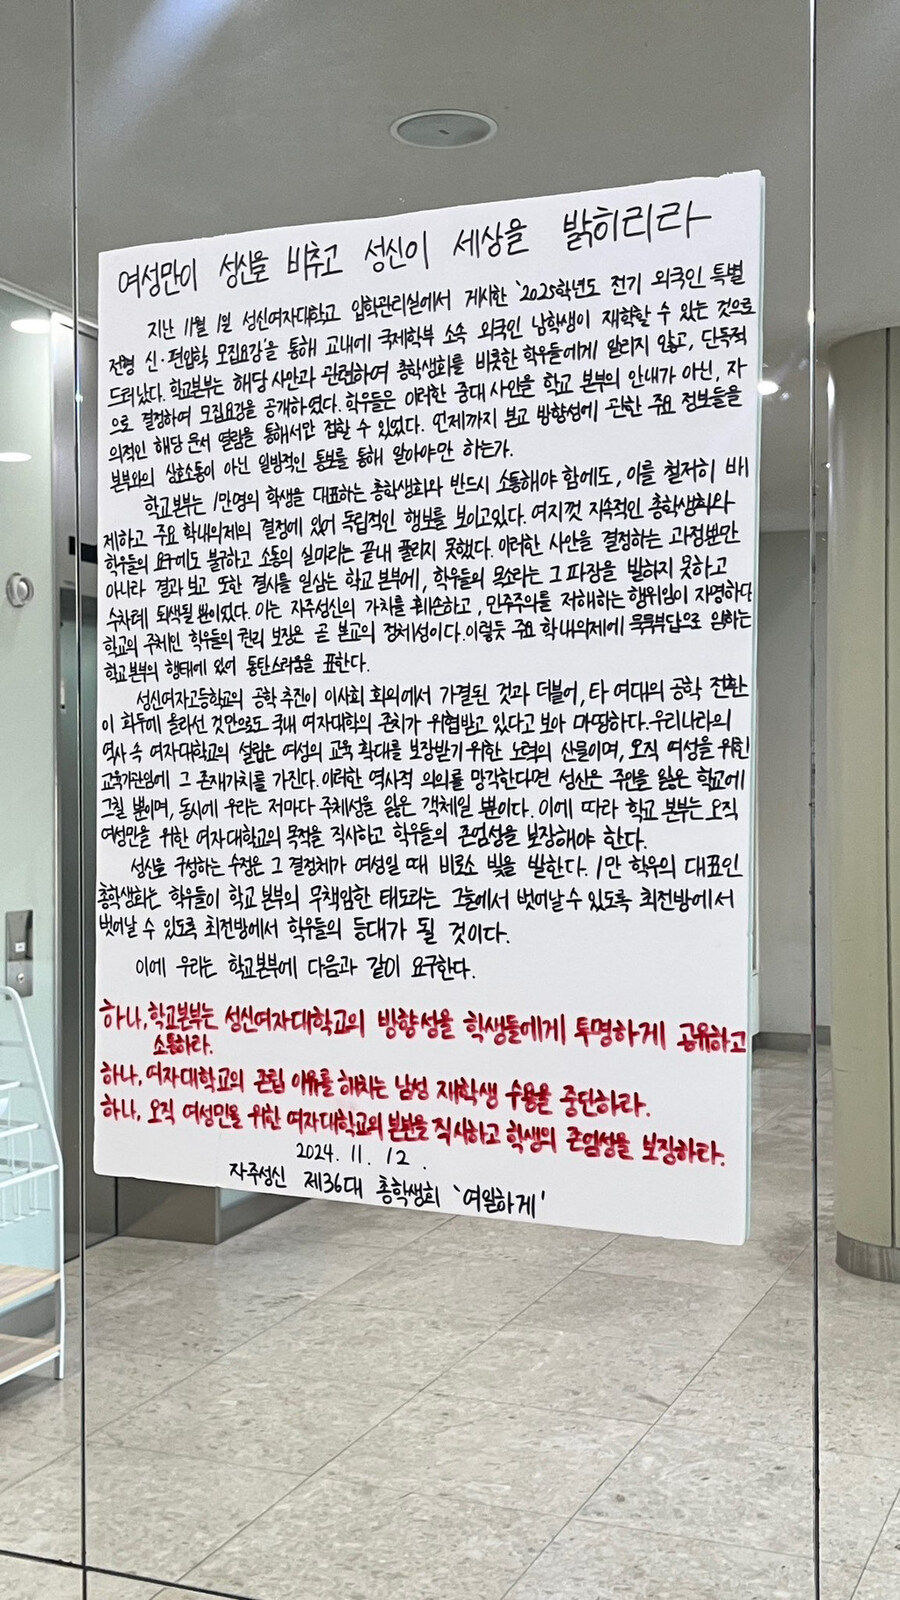 여성만이 성신을 비추고 성신이 세상을 밝히리라
지난 11월 1일 성신여자대학교 입학관리실에서 게시한 '2025학년도 전기 외국인 특별
전형 신·편입학 모집요강'을 통해 교내에 국제학부 소속 외국인 남학생이 재학할 수 있는 것으로
드러났다. 학교본부는 해당 사안과 관련하여 총학생회를 비롯한 학우들에게 알리지 않고, 단독적
으로 결정하여 모집요강을 공개하였다. 학우들은 이러한 중대 사안을 학교 본부의 안내가 아닌, 자
의적인 해당 문서 열람을 통해서만 접할 수 있었다. 언제까지 본교 방향성에 관한 주요 정보들을
본부와의 상호소통이 아닌 일방적인 통보를 통해 알아야만 하는가.
학교본부는 1만명의 학생을 대표하는 총학생회와 반드시 소통해야 함에도, 이를 철저히 배
제하고 주요 학내의제의 결정에 있어 독립적인 행보를 보이고있다. 여지껏 지속적인 총학생회와
학우들의 요구에도 불구하고 소통의 실마리는 끝내 풀리지 못했다. 이러한 사안을 결정하는 과정뿐만
아니라 결과 보고 또한 결시를 일삼는 학교 본부에, 학우들의 목소리는 그 파장을 발하지 못하고
수차례 퇴색될 뿐이었다. 이는 자주성신의 가치를 훼손하고, 민주주의를 저해하는 행위임이 자명하다
학교의 주체인 학우들의 권리 보장은 곧 본교의 정체성이다. 이렇듯 주요 학내의제에 묵묵부답으로 임하는
학교본부의 행태에 있어 통탄스러움을 표한다.
성신여자고등학교의 공학 추진이 이사회 회의에서 가결된 것과 더불어, 타 여대의 공학 전환
이 화두에 올라선 것만으로도 국내 여자대학의 존치가 위협받고 있다고 보아 마땅하다. 우리나라의
역사 속 여자대학교의 설립은 여성의 교육 확대를 보장받기 위한 노력의 산물이며, 오직 여성을 위한
교육기관임에 그 존재가치를 가진다. 이러한 역사적 의의를 망각한다면 성신은 주인을 잃은 학교에
그칠 뿐이며, 동시에 우리는 저마다 주체성을 잃은 객체일 뿐이다. 이에 따라 학교 본부는 오직
여성만을 위한 여자대학교의 목적을 직시하고 학우들의 존엄성을 보장해야 한다.
성신을 구성하는 수정은 그 결정체가 여성일 때 비로소 빛을 발한다. 1만 학우의 대표인
총학생회는 학우들이 학교 본부의 무책임한 태도라는 그늘에서 벗어날 수 있도록 최전방에서
벗어날 수 있도록 최전방에서 학우들의 등대가 될 것이다.
이에 우리는 학교본부에 다음과 같이 요구한다.
하나, 학교본부는 성신여자대학교의 방향성을 학생들에게 투명하게 공유하고
소통하라.
하나, 여자대학교의 존립 이유를 해치는 남성 재학생 수용을 중단하라.
하나, 오직 여성만을 위한 여자대학교의 본분을 직시하고 학생의 존엄성을 보장하라.
2024. 11. 12.
자주성신 제36대 총학생회 '여원하게'